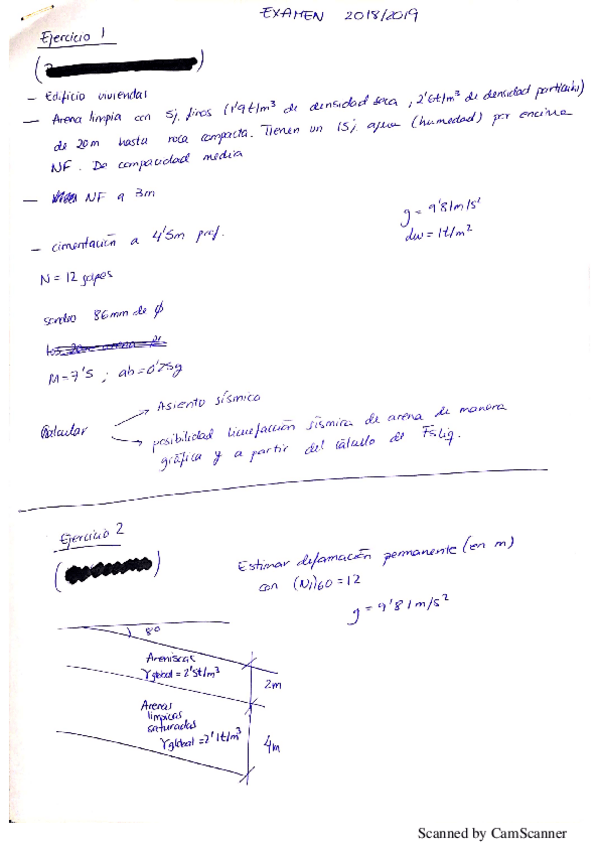 EXAMEN 2018/2019
Ejercicio 1
— Edificio viviendas
— Arena limpia con 5% finos (1'9t/m³ de densidad seca, 2'6t/m³ de densidad partículas)
de 20m hasta roca compacta. Tienen un 15% agua (humedad) por encima
NF. De compacidad media
— NF a 3m
g = 9'81m/s²
dw = 1t/m²
— cimentación a 4'5m prof.
N = 12 golpes
sondeo 86mm de ϕ
M = 7'5 ; ab = 0'25g
Calcular
Asiento sísmico
posibilidad licuefacción sísmica de arena de manera
gráfica y a partir del cálculo de Fsliq.
Ejercicio 2
Estimar deformación permanente (en m)
con (N₁)60 = 12
g = 9'81m/s²
8º
Areniscas
γglobal = 2'5t/m³
2m
Arenas
limpias
saturadas
γglobal = 2'1t/m³
4m
Scanned by CamScanner